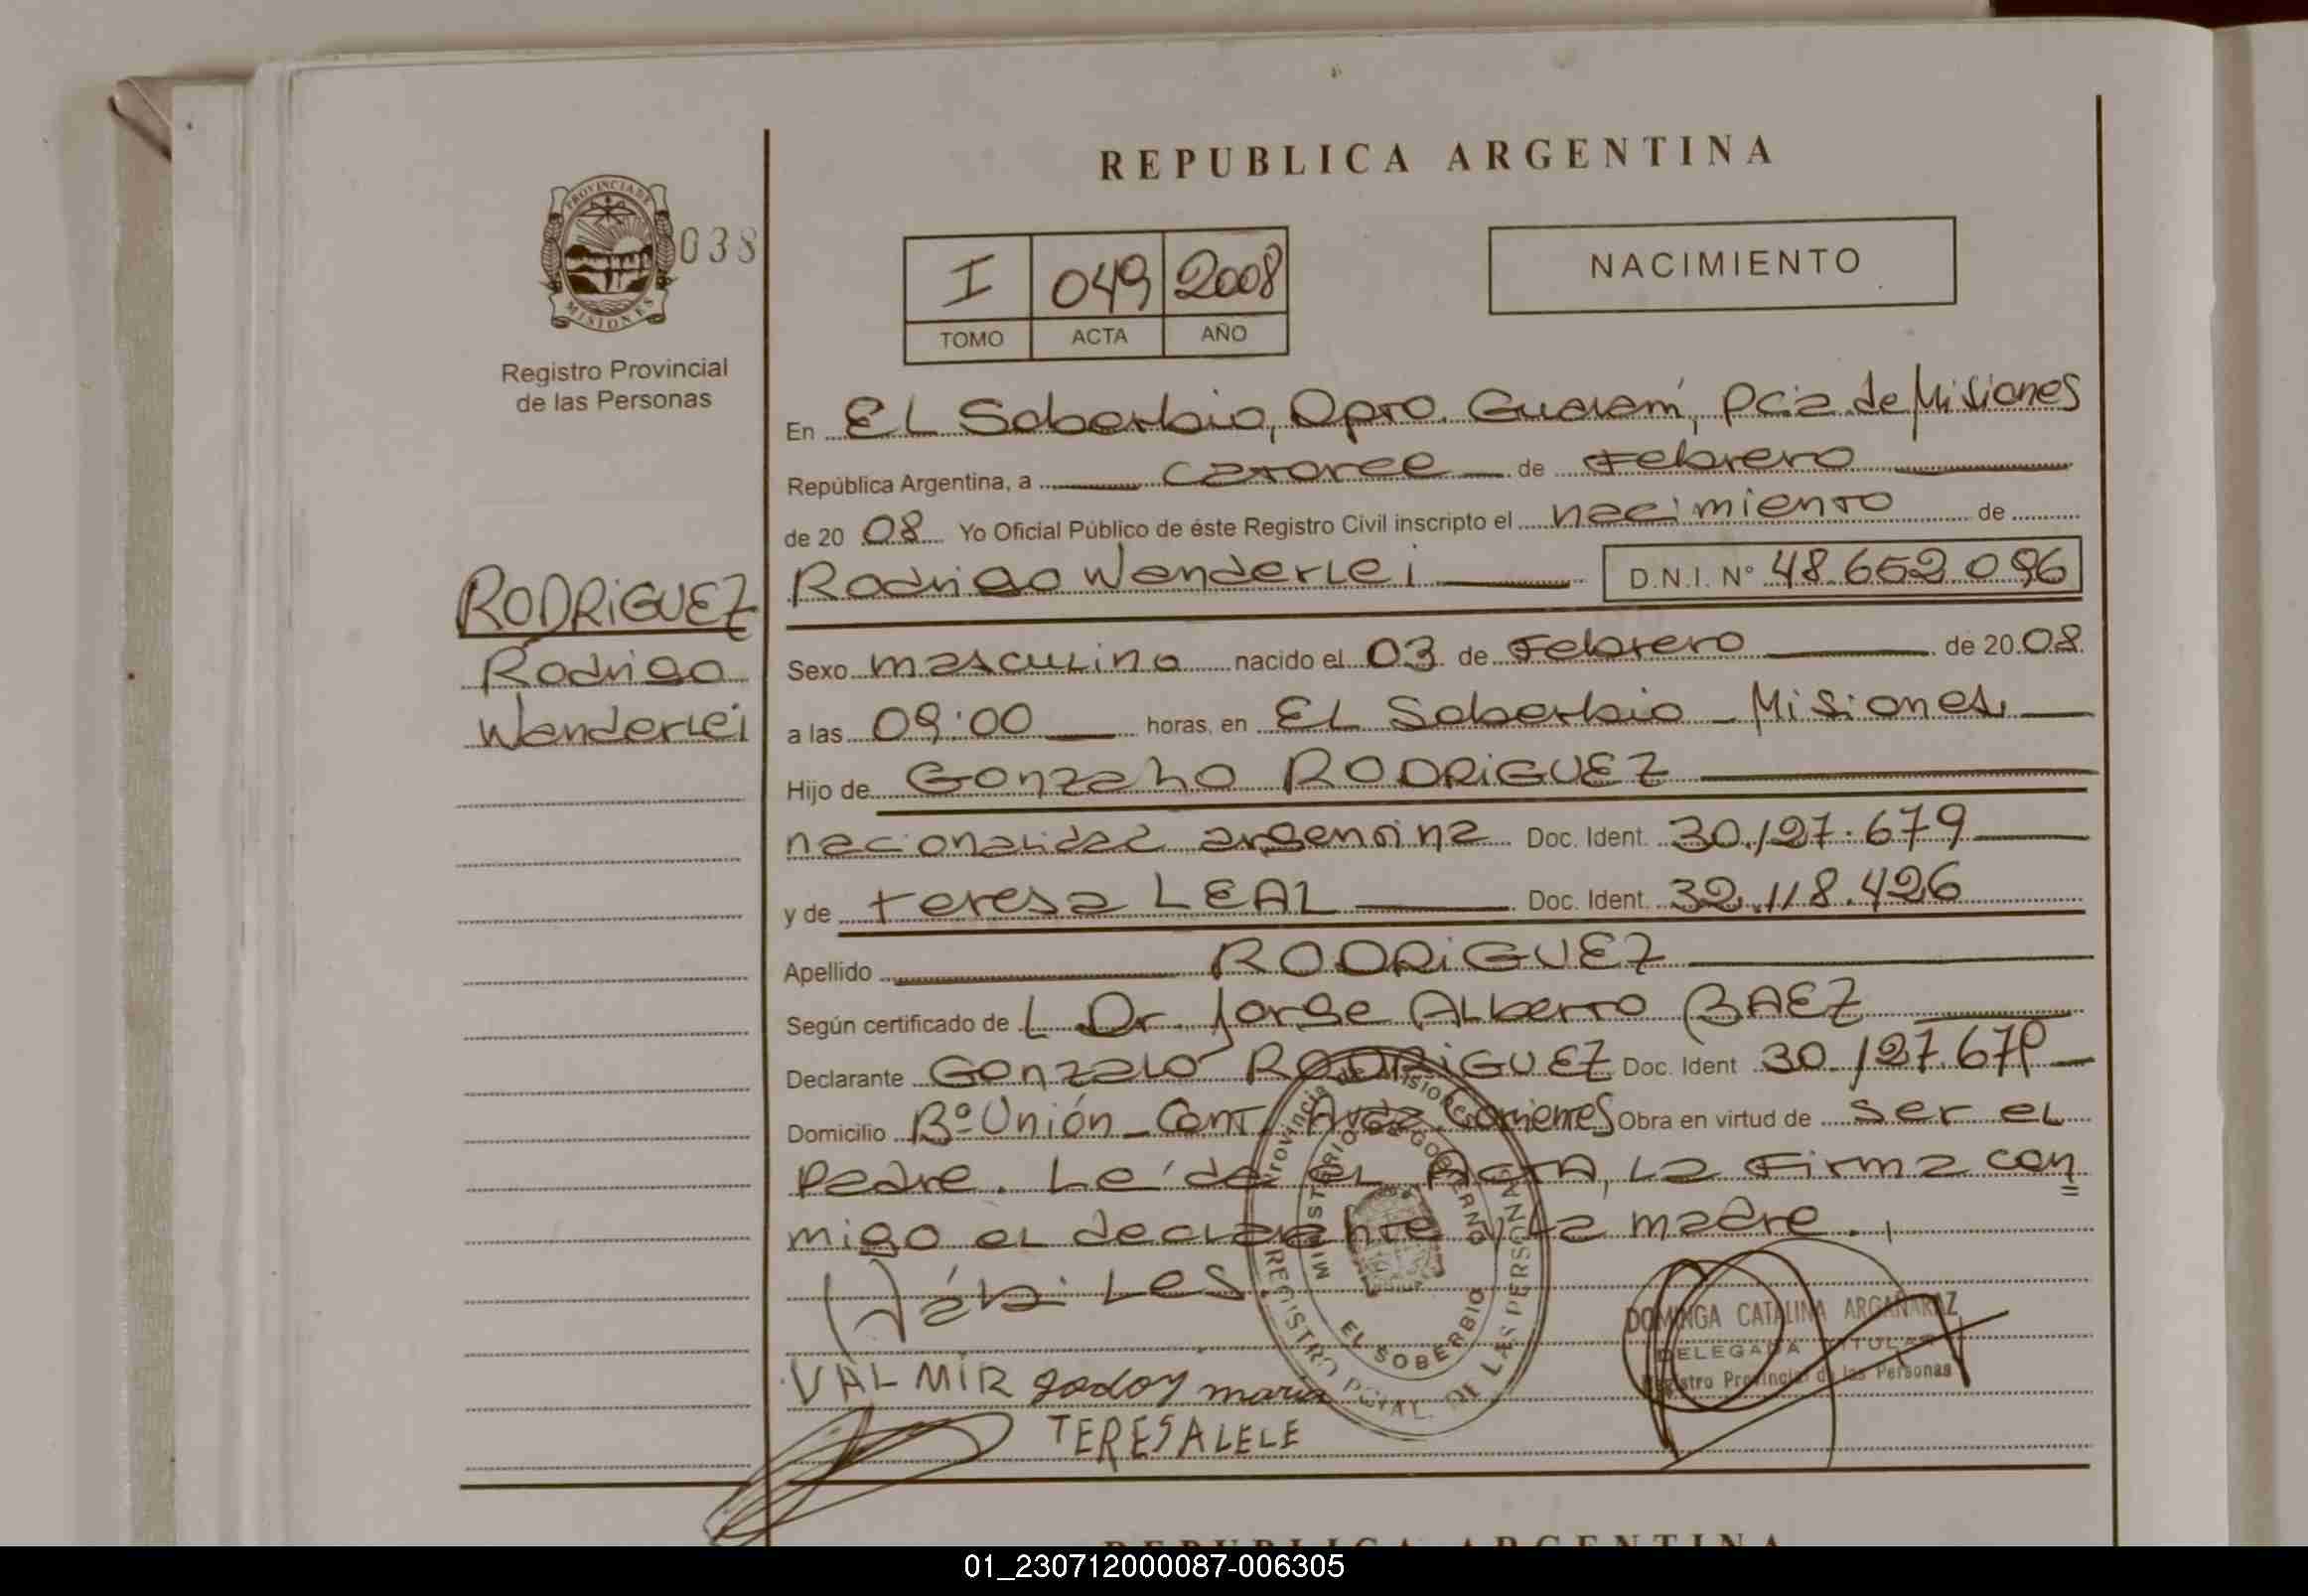 REPUBLICA ARGENTINA
PROVINCIA DE
MISIONES
038
Registro Provincial
de las Personas
I 049 2008
TOMO ACTA AÑO
NACIMIENTO
En EL Soberbio, Dpto. Guaraní, Pcia. de Misiones
República Argentina, a catorce de Febrero
de 20 08 Yo Oficial Público de éste Registro Civil inscripto el nacimiento de
Rodrigo Wanderlei D.N.I. Nº 48.652.096
RODRIGUEZ
Rodrigo
Wanderlei
Sexo masculino nacido el 03 de Febrero de 20 08
a las 09:00 horas, en EL Soberbio - Misiones
Hijo de Gonzalo RODRIGUEZ
nacionalidad argentina Doc. Ident. 30.127.679
y de teresa LEAL Doc. Ident. 32.118.426
Apellido RODRIGUEZ
Según certificado de L Dr. Jorge Alberto BAEZ
Declarante Gonzalo RODRIGUEZ Doc. Ident 30.127.679
Domicilio Bº Unión - Cont. Avda. Corrientes Obra en virtud de ser el
padre. Leída el ACTA, la firma con
migo el declarante y la madre.
VALMIR godoy maria
TERESA LELE
Provincia de Misiones
MINISTERIO DE GOBIERNO
REGISTRO PCIAL. DE LAS PERSONAS
EL SOBERBIO
DOMINGA CATALINA ARGAÑARAZ
DELEGADA TITULAR
Registro Provincial de las Personas
REPUBLICA ARGENTINA
01_230712000087-006305